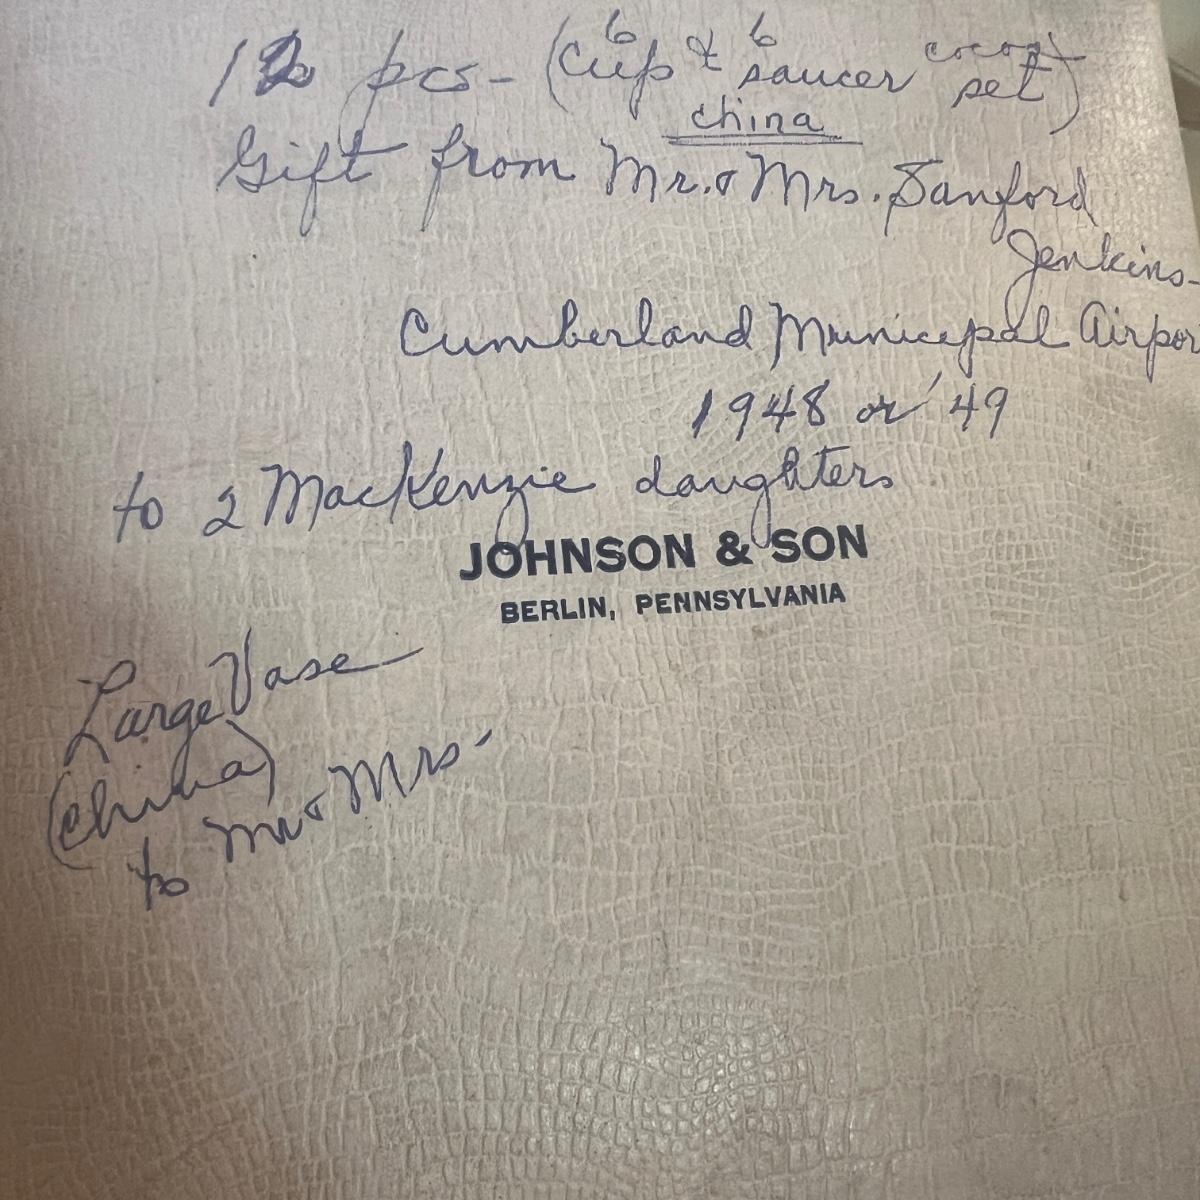 12 pcs- (6 cup & 6 saucer cocoa set)
china
Gift from Mr. & Mrs. Sanford
Jenkins-
Cumberland Municipal Airpor
1948 or '49
to 2 MacKenzie daughters
JOHNSON & SON
BERLIN, PENNSYLVANIA
Large Vase
(china)
to Mr & Mrs-